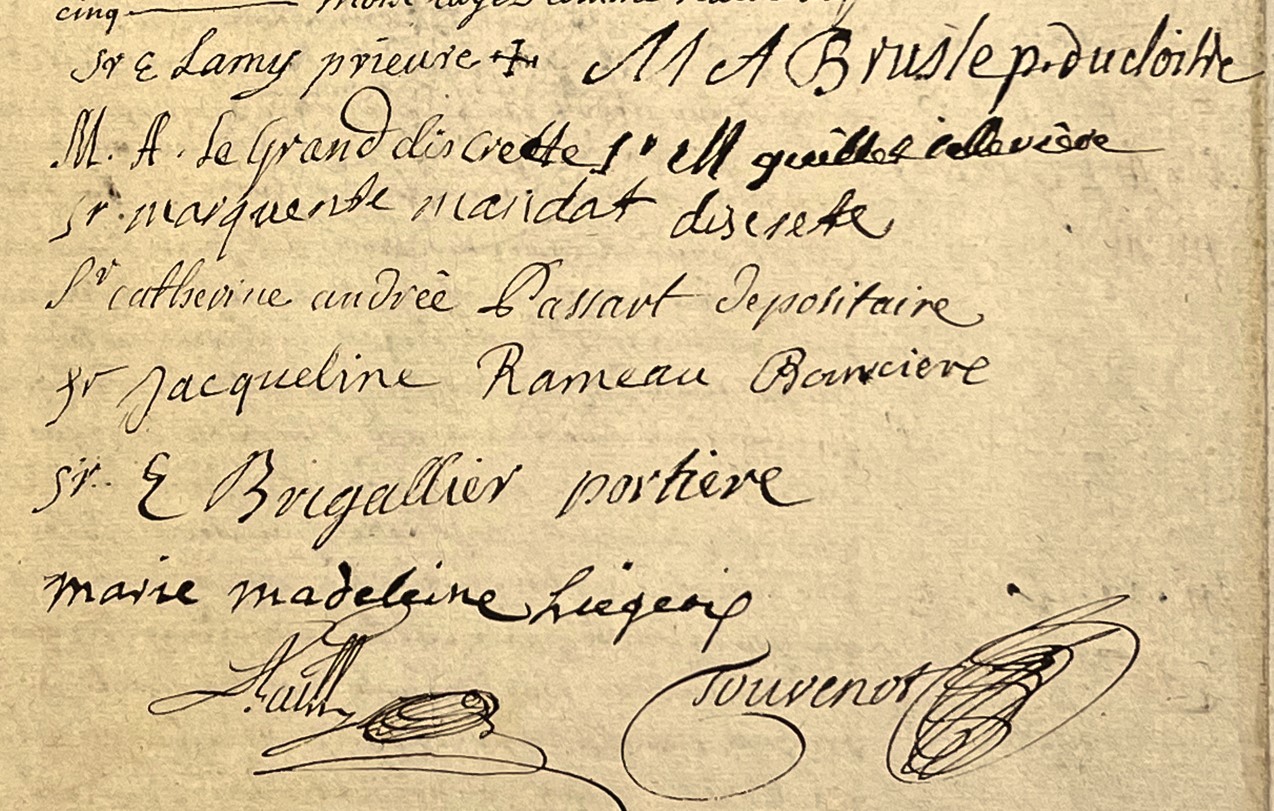 cinq
Sr E Lamy prieure + M A Brusle p. du cloitre
M. A. Le Grand discrette Sr M celleriere
Sr. marguerite mandat discrete
Sr catherine andrêe Passart depositaire
Sr Jacqueline Rameau Bourciere
Sr. E Brigallier portiere
marie madeleine Liegeois
Touvenot